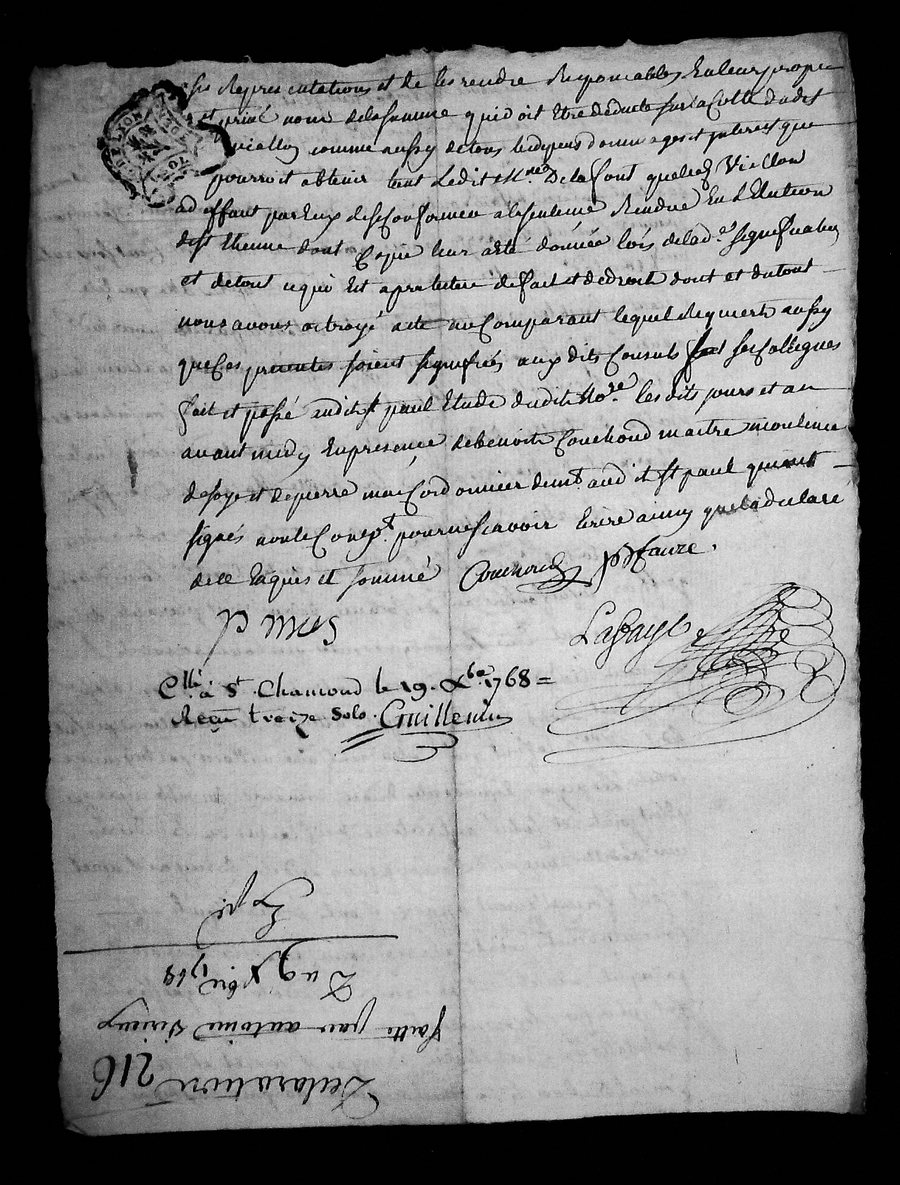 ses Representations et de les rendre Responsables En leur propre
et privé nom de la somme qui doit Etre déduite sur la Cotte dudit
Viallon comme aussy de tous les depens dommages et interest que
pourroit obtenir tant Ledit Me De la font que led Viallon
a deffaut par Eux de se Conformer a la sentence Rendue En L'Election
de st Etienne dont Copie leur a été donnée lors de la de signification
et de tout ce qui Est a protester de fait et de droit dont et du tout
nous avons octroyé acte au Comparant lequel Requiert aussy
que Ces presentes soient signifiées aux dits Consuls et ses Collegues
fait et passé audit st paul Etude dudit Nore les dits jours et an
avant midy En presence de benoit Couchoud maitre moulineur
de soye et de pierre Cordonnier demt audit st paul qui ont
signés non le Compt pour ne scavoir Ecrire ainsy que la declaré
de ce Enquis et sommé Couchoud
Lafaye
Cllé à St Chamond le 19 Xbre 1768 =
Reçu treize sols Guillemin
Expé
Du 9 Xbre 1768
faitte par antoine
Declaration 216
DE LYON